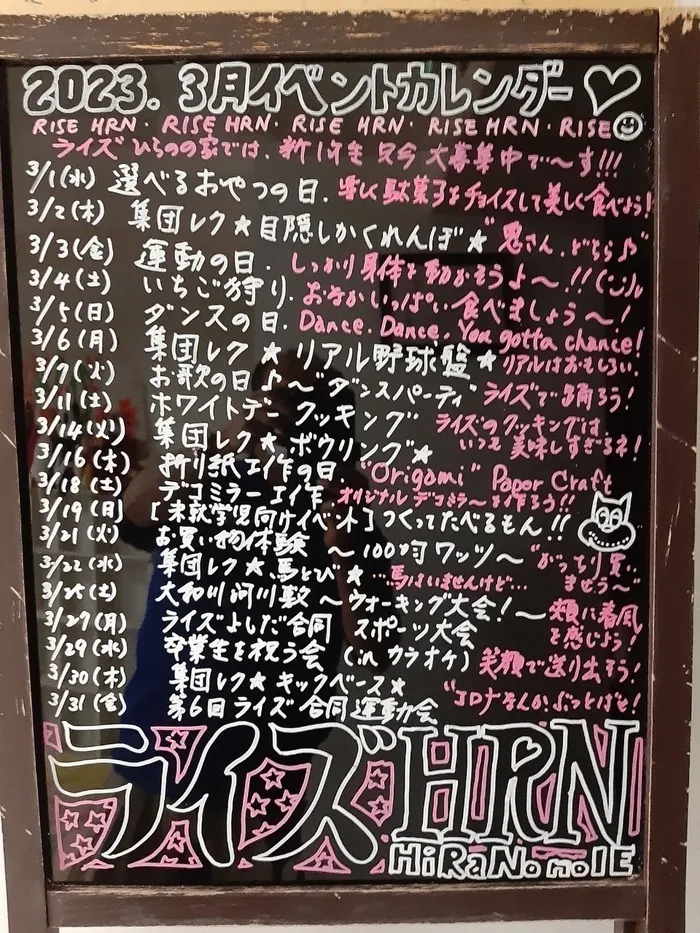 2023. 3月イベントカレンダー♡
RISE HRN・RISE HRN・RISE HRN・RISE HRN・RISE
ライズひらのの家では、新1年生 只今 大募集中で〜す!!!
3/1(水) 選べるおやつの日. 楽しく駄菓子をチョイスして美しく食べよう!
3/2(木) 集団レク★目隠しかくれんぼ★ "鬼さん、どちら♪"
3/3(金) 運動の日. しっかり身体を動かそう♪〜!!
3/4(土) いちご狩り. おなかいっぱい食べましょう〜!
3/5(日) ダンスの日. Dance. Dance. You gotta chance!
3/6(月) 集団レク★リアル野球盤★ リアルはおもしろい.
3/7(火) お歌の日♪〜"ダンスパーティ" ライズで踊ろう!
3/11(土) ホワイトデークッキング ライズのクッキングは いつも美味しすぎるネ!
3/14(火) 集団レク★ボウリング★
3/16(木) 折り紙工作の日. "Origami" Paper Craft
3/18(土) デコミラー工作 オリジナルデコミラーを作ろう!!
3/19(日) [未就学児向けイベント]つくってたべるもん!!
3/21(火) お買い物体験 〜100均ワッツ〜 "がっちり買いませう〜"
3/22(水) 集団レク★馬とび★ …馬はいませんけど…
3/25(土) 大和川河川敷〜ウォーキング大会!〜 頬に春風を感じよう!
3/27(月) ライズよしだ合同 スポーツ大会
3/29(水) 卒業生を祝う会 (in カラオケ) 笑顔で送り出そう!
3/30(木) 集団レク★キックベース★
3/31(金) 第6回ライズ合同運動会 "コロナなんかぶっとばせ!
ライズHRN
HiRaNo.no.IE